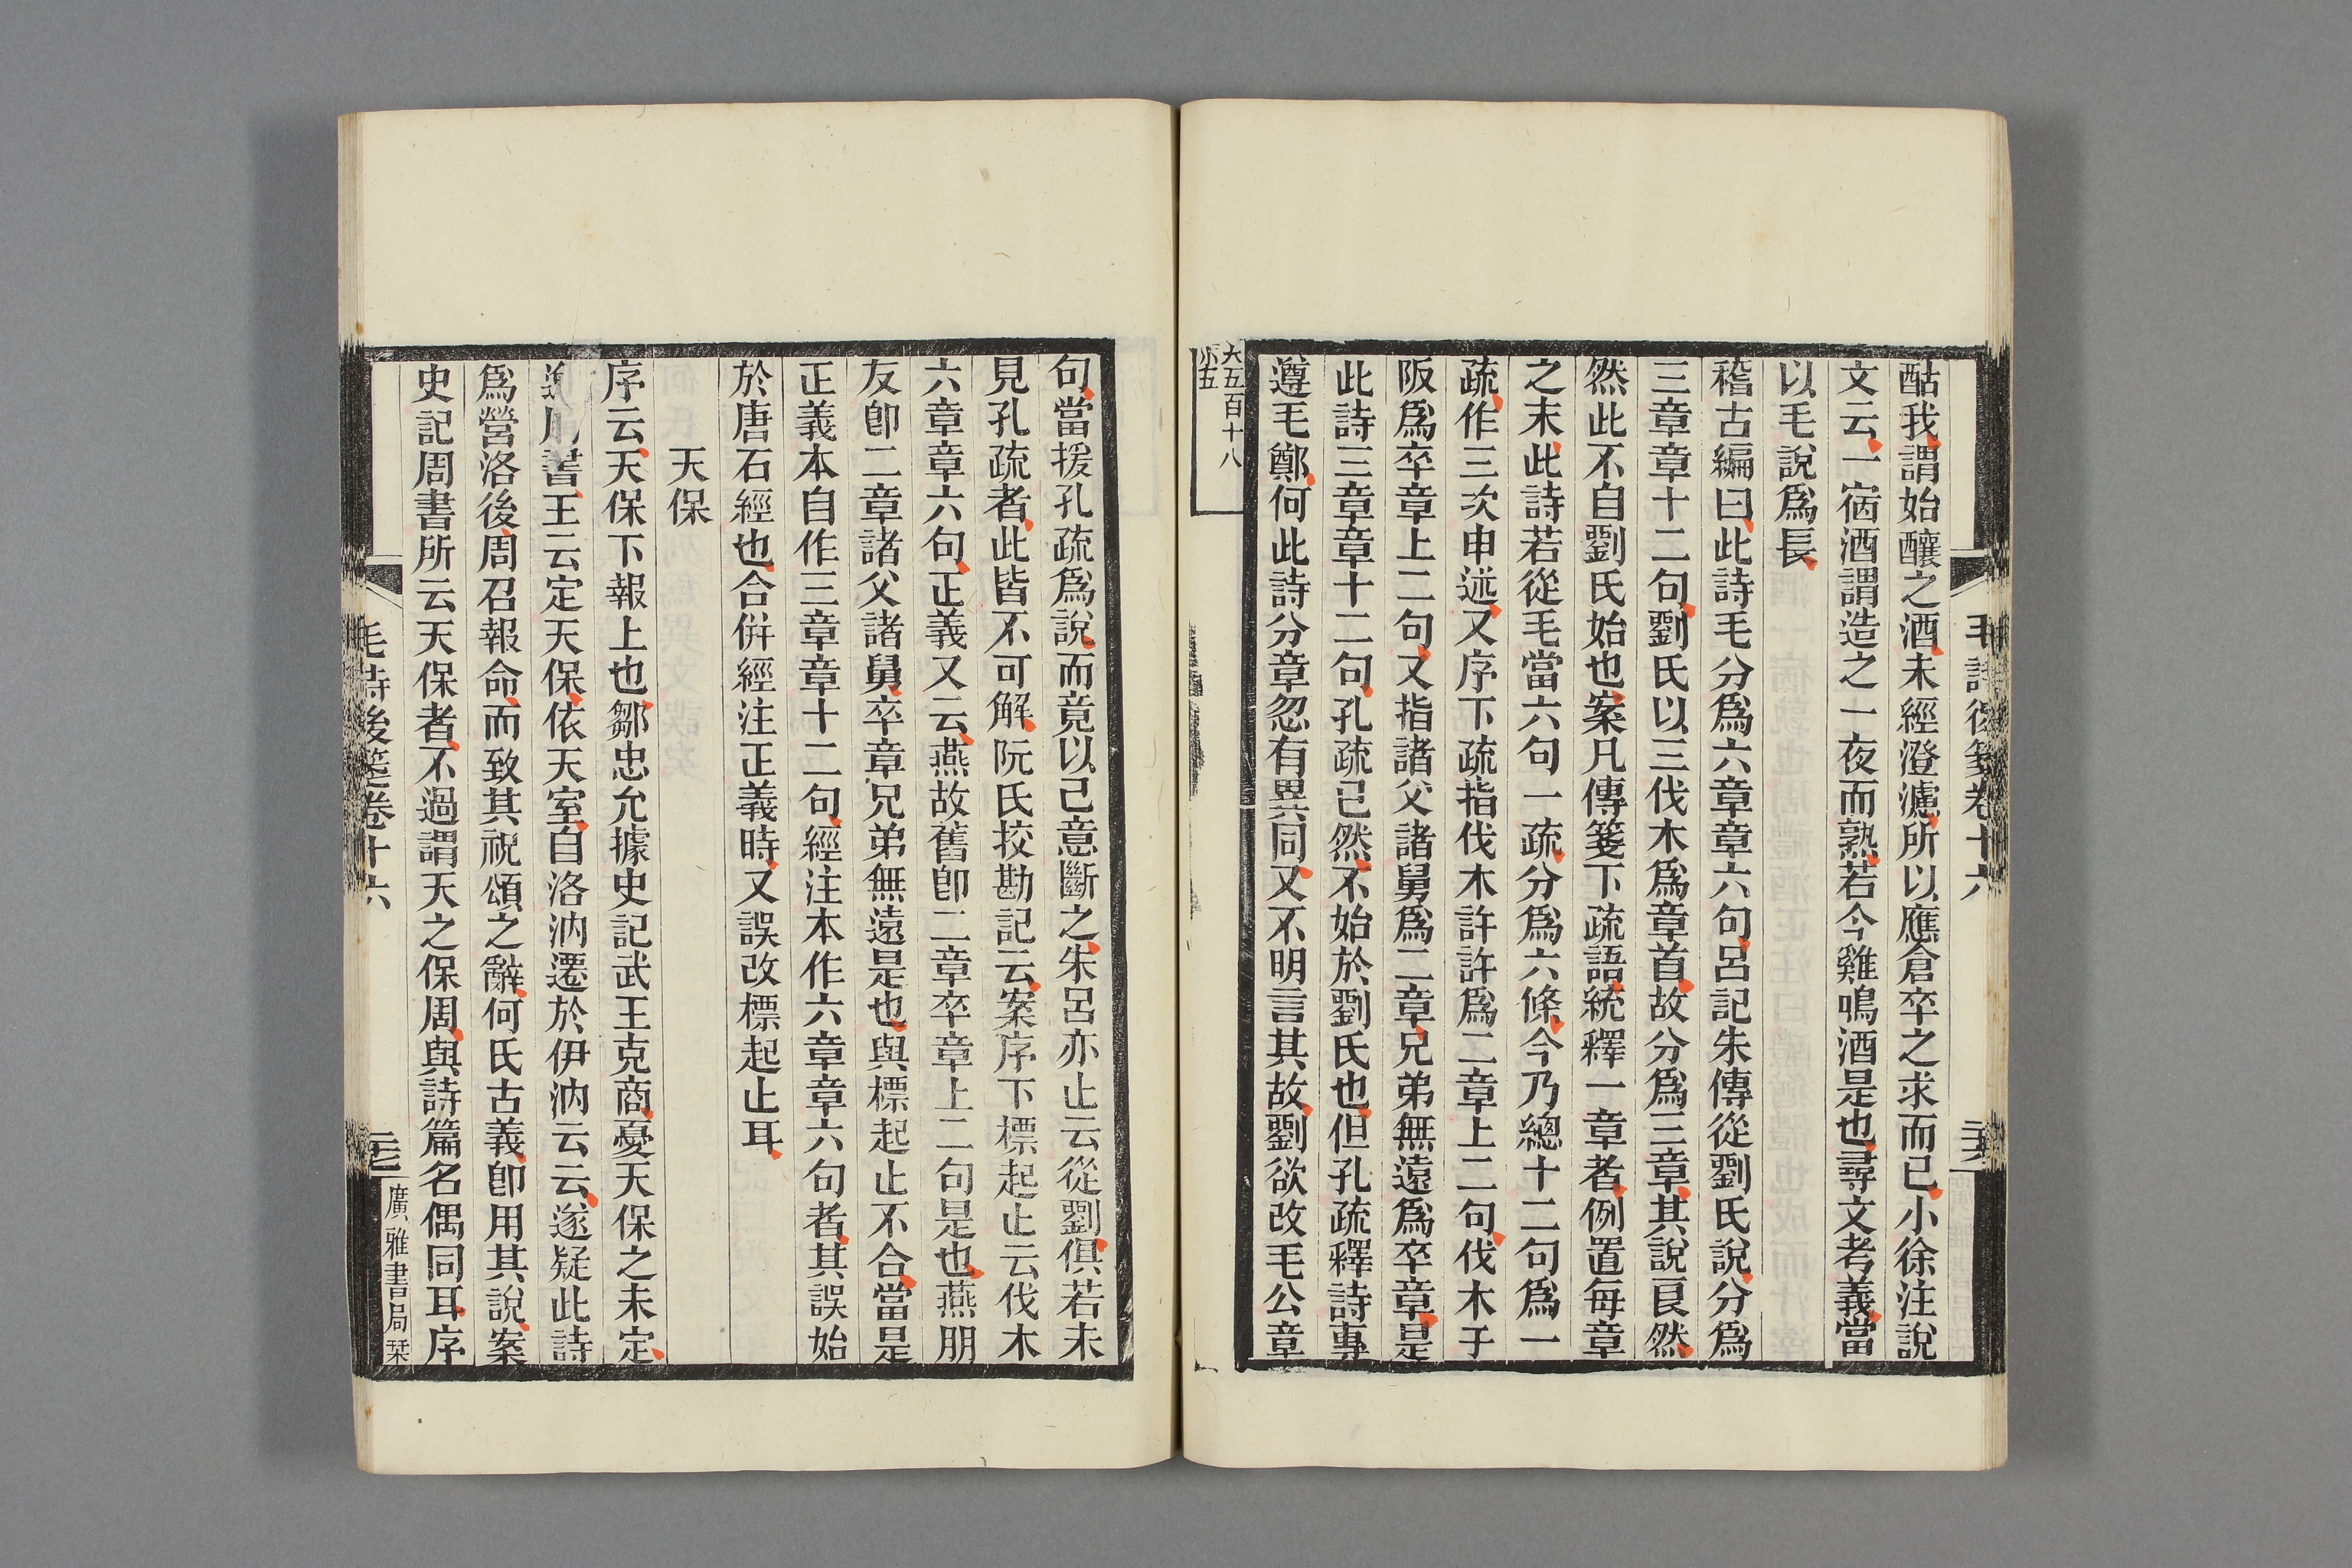 酤我謂始釀之酒未經澄濾所以應倉卒之求而已小徐注說
文云一宿酒謂造之一夜而熟若今雞鳴酒是也尋文考義當
以毛說爲長
稽古編曰此詩毛分爲六章章六句呂記朱傳從劉氏說分爲
三章章十二句劉氏以三伐木爲章首故分爲三章其說良然
然此不自劉氏始也案凡傳箋下疏語統釋一章者例置每章
之末此詩若從毛當六句一疏分爲六條今乃總十二句爲一
疏作三次申述又序下疏指伐木許許爲二章上二句伐木于
阪爲卒章上二句又指諸父諸舅爲二章兄弟無遠爲卒章是
此詩三章章十二句孔疏已然不始於劉氏也但孔疏釋詩專
遵毛鄭何此詩分章忽有異同又不明言其故劉欲改毛公章
大五百十八
小五
句當援孔疏爲說而竟以己意斷之朱呂亦止云從劉俱若未
見孔疏者此皆不可解阮氏挍勘記云案序下標起止云伐木
六章章六句正義又云燕故舊卽二章卒章上二句是也燕朋
友卽二章諸父諸舅卒章兄弟無遠是也與標起止不合當是
正義本自作三章章十二句經注本作六章章六句者其誤始
於唐石經也合併經注正義時又誤改標起止耳
天保
序云天保下報上也鄒忠允據史記武王克商憂天保之未定
周書王云定天保依天室自洛汭遷於伊汭云云遂疑此詩
爲營洛後周召報命而致其祝頌之辭何氏古義卽用其說案
史記周書所云天保者不過謂天之保周與詩篇名偶同耳序
毛詩後箋卷十六
廣雅書局栞